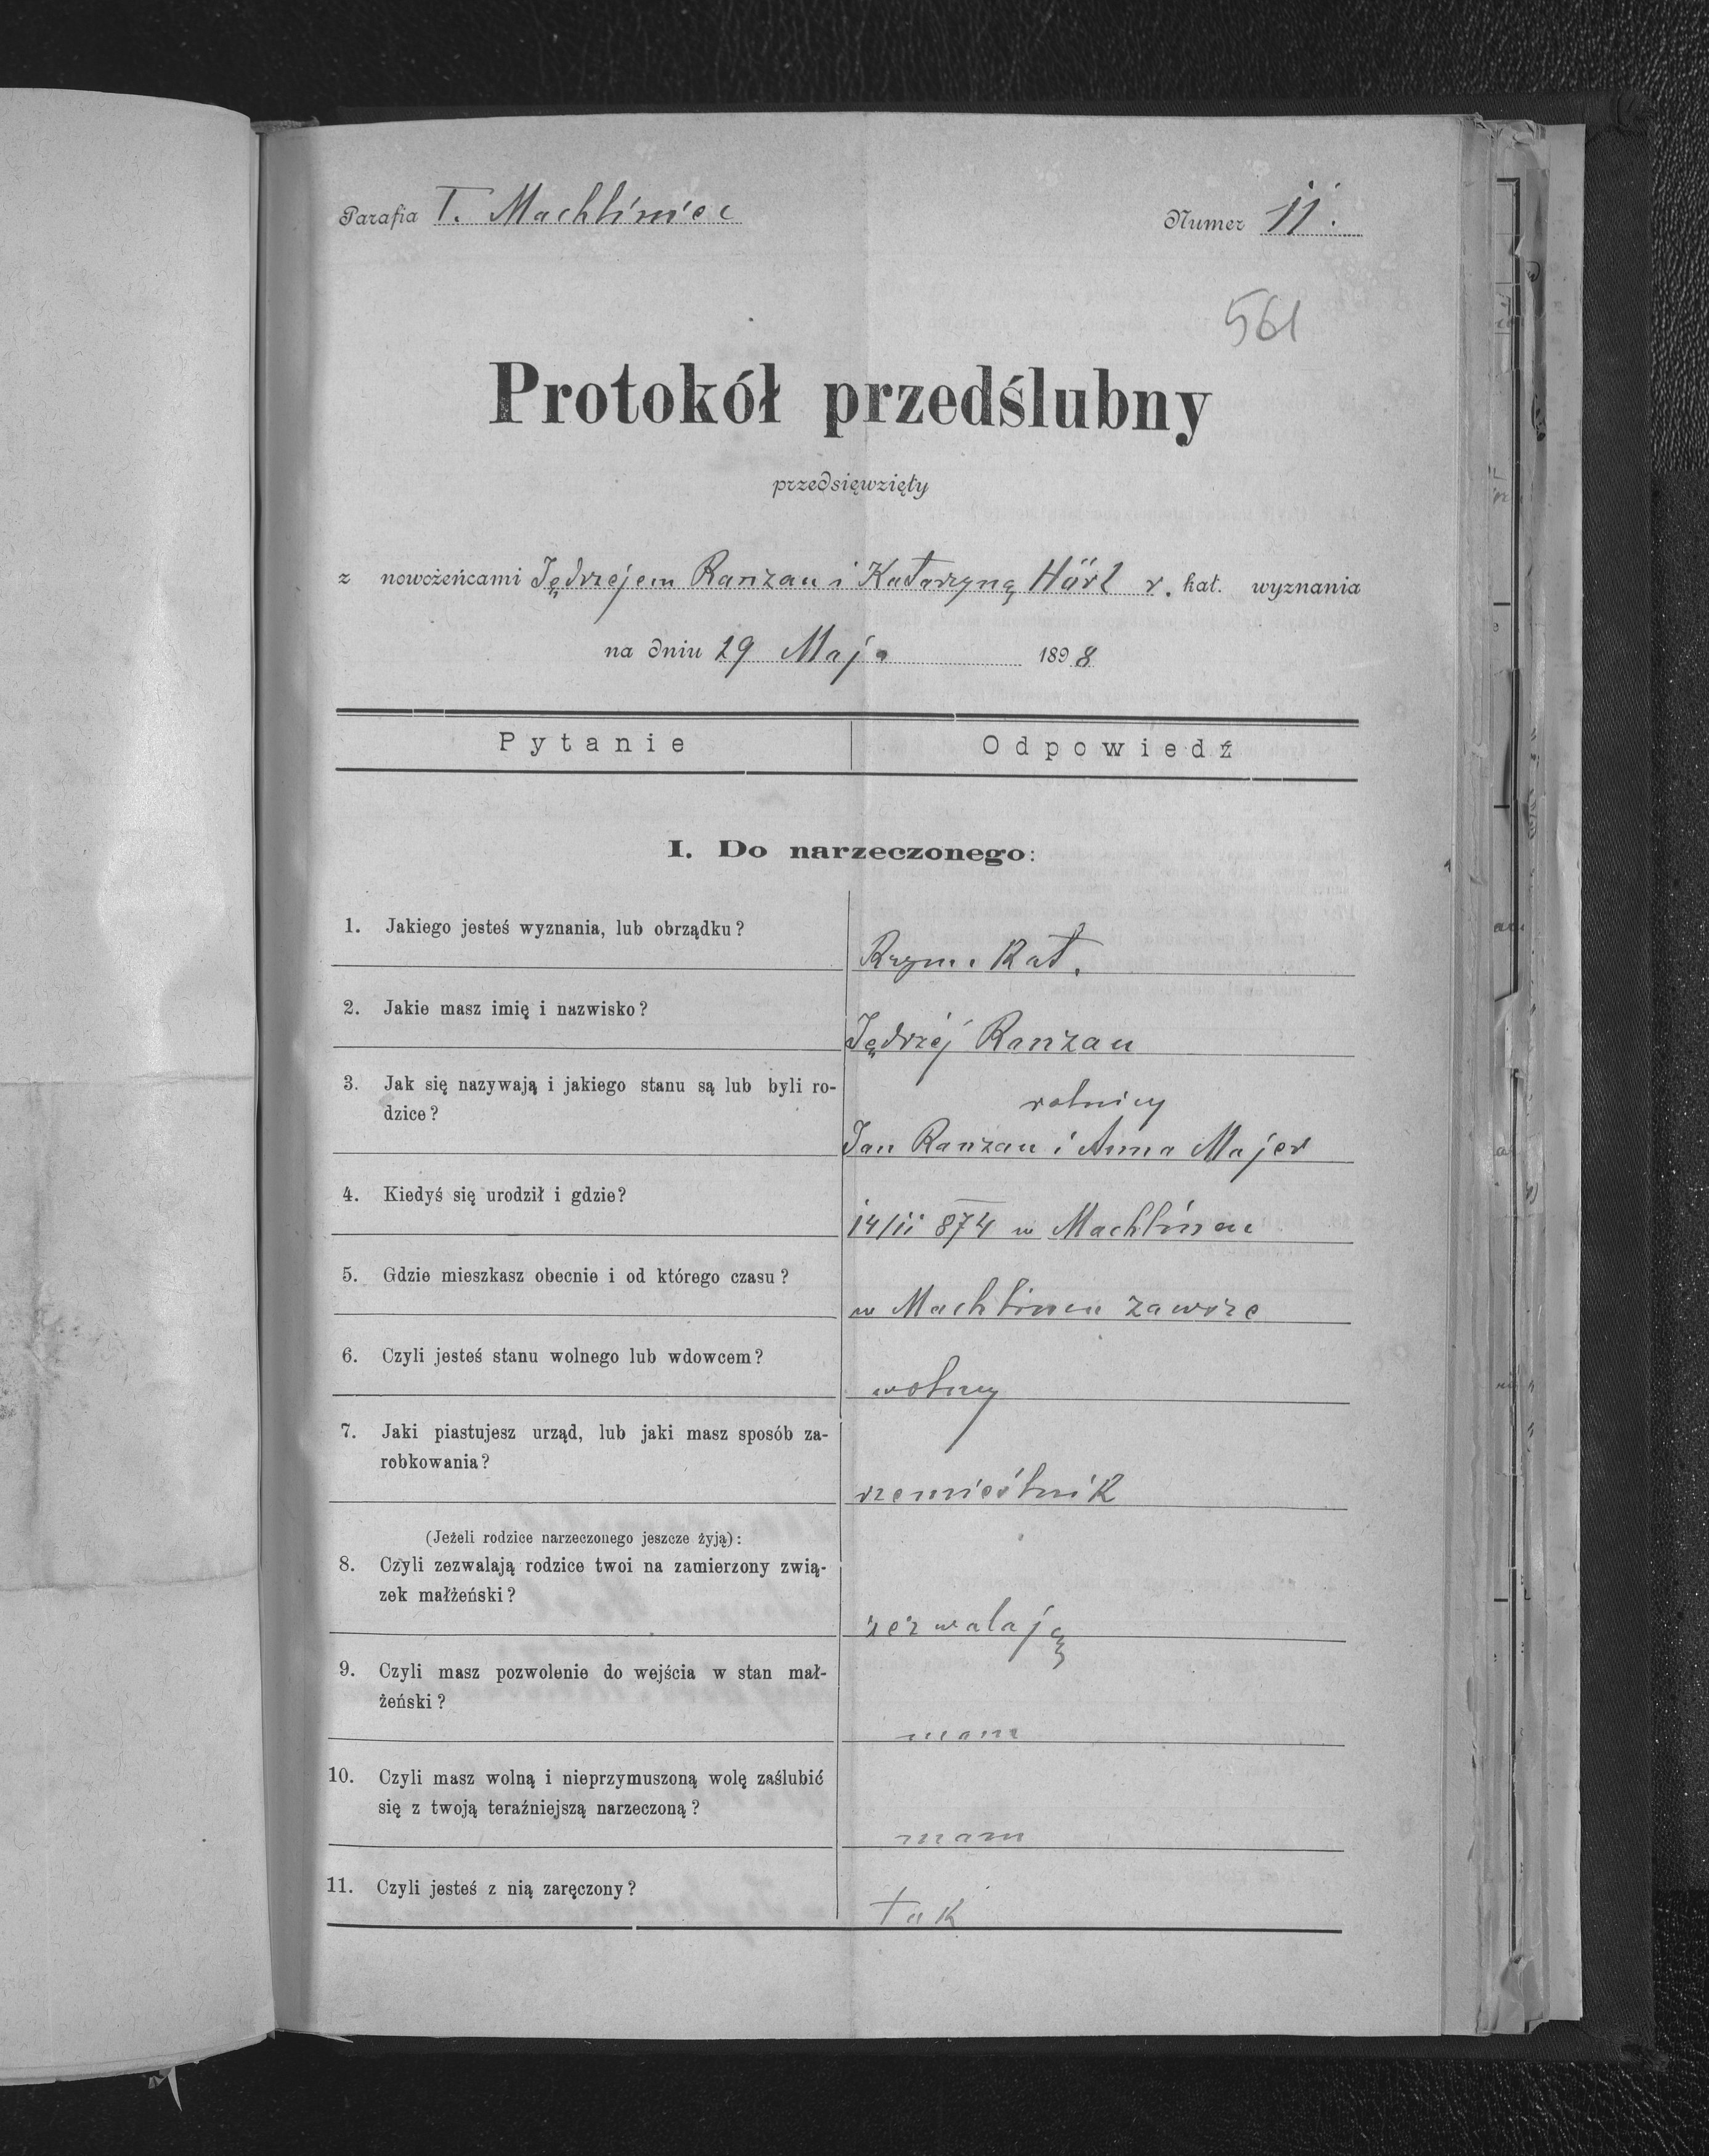 Parafia T. Machliniec
Numer 11.
561
Protokół przedślubny
przedsięwzięty
z nowożeńcami Jędrzejem Ranzau i Katarzyną Hürl r. kat. wyznania
na dniu 29 Maja 1898
Pytanie
Odpowiedź
I. Do narzeczonego:
1. Jakiego jesteś wyznania, lub obrządku?
Rzym. Kat.
2. Jakie masz imię i nazwisko?
Jędrzéj Ranzau
3. Jak się nazywają i jakiego stanu są lub byli ro-
dzice?
rolnicy
Jan Ranzau i Anna Majer
4. Kiedyś się urodził i gdzie?
14/11 874 w Machlińcu
5. Gdzie mieszkasz obecnie i od którego czasu?
w Machlińcu zawsze
6. Czyli jesteś stanu wolnego lub wdowcem?
wolny
7. Jaki piastujesz urząd, lub jaki masz sposób za-
robkowania?
rzemieślnik
(Jeżeli rodzice narzeczonego jeszcze żyją):
8. Czyli zezwalają rodzice twoi na zamierzony zwią-
zek małżeński?
zezwalają
9. Czyli masz pozwolenie do wejścia w stan mał-
żeński?
mam
10. Czyli masz wolną i nieprzymuszoną wolę zaślubić
się z twoją teraźniejszą narzeczoną?
mam
11. Czyli jesteś z nią zaręczony?
tak